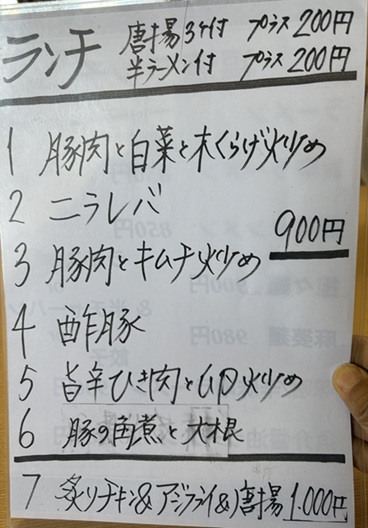 ランチ
唐揚3ケ付 プラス200円
半ラーメン付 プラス200円
1 豚肉と白菜と木くらげ炒め
2 ニラレバ
900円
3 豚肉とキムチ炒め
4 酢豚
5 旨辛ひき肉と卵炒め
6 豚の角煮と大根
7 炙りチキン&アジフライ&唐揚 1.000円